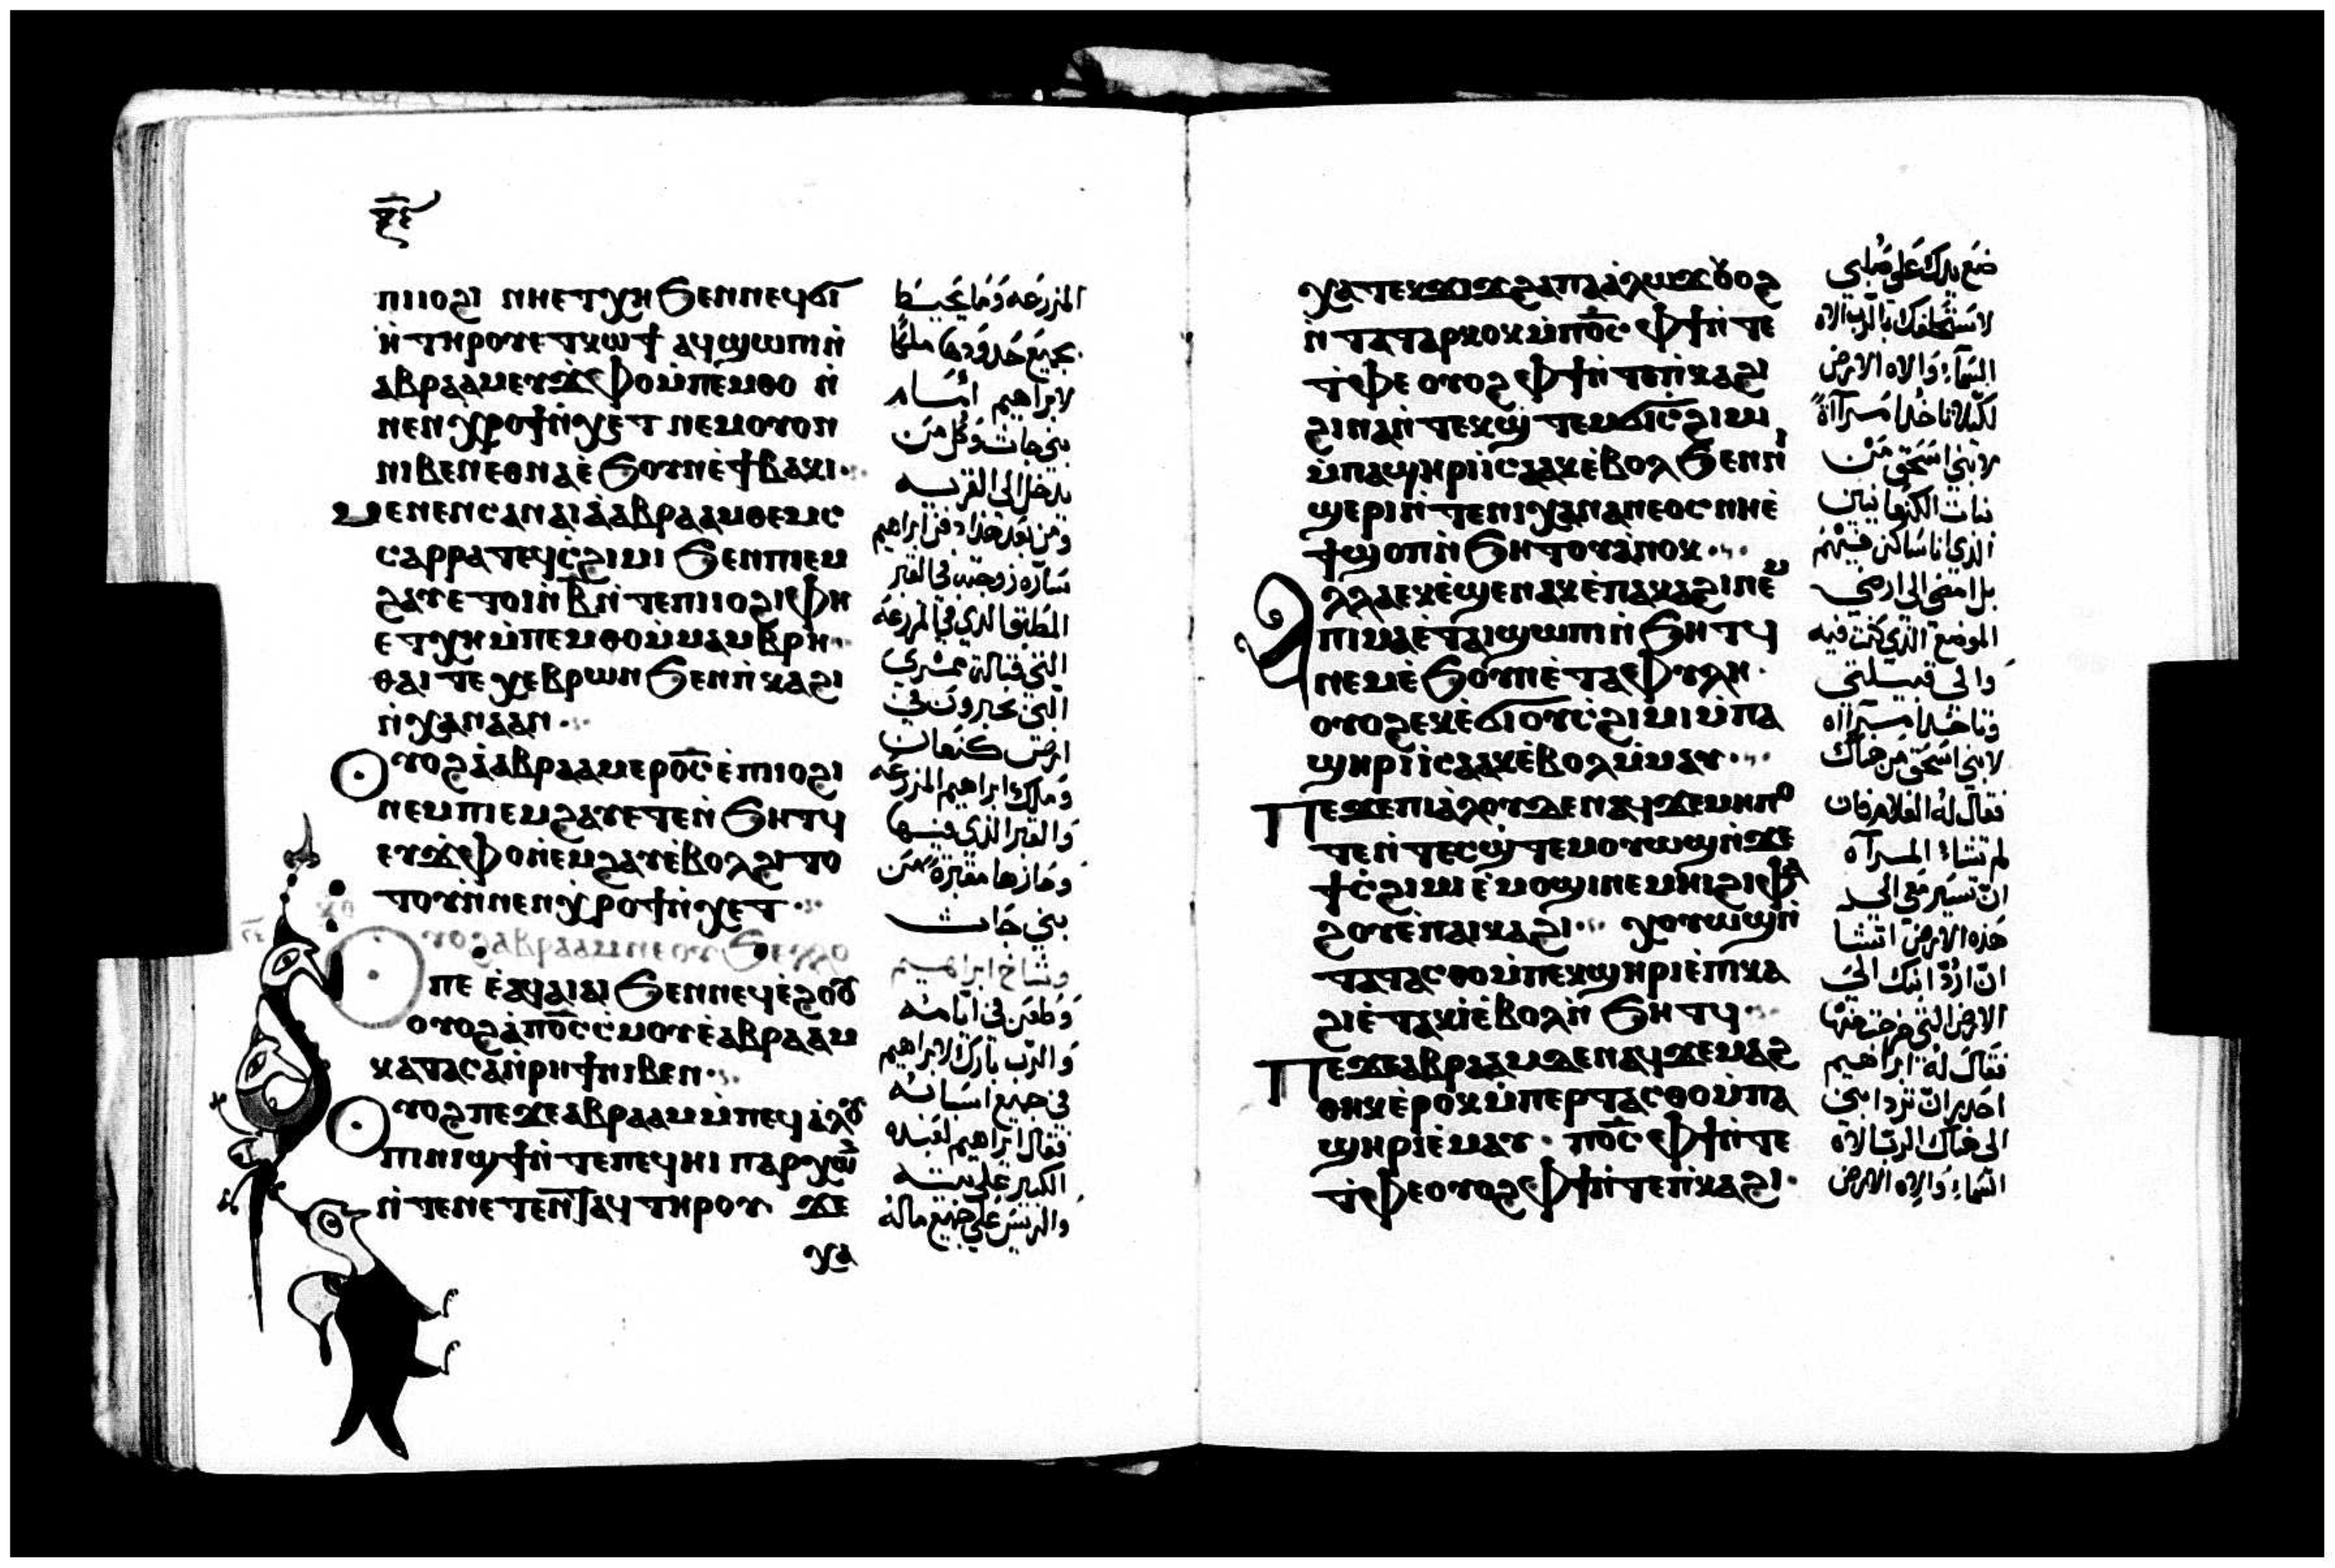 ⲡⲓⲓⲟϩⲓ ⲛⲏⲉⲧⲭⲏ ϧⲉⲛⲛⲉϥϭⲓ
ⲏ̀ ⲧⲏⲣⲟⲩ ⲉⲧⲕⲱϯ ⲁϥϣⲱⲡⲓⲛ̀
ⲁⲃⲣⲁⲁⲙ ⲉⲩϫⲫⲟ ⲙ̀ⲡⲉⲙⲑⲟ ⲛ̀
ⲛⲉⲛϣⲏⲣⲓ ⲛ̀ⲭⲉⲧ ⲛⲉⲙ ⲟⲩⲟⲛ
ⲛⲓⲃⲉⲛ ⲉⲑⲛⲁⲉ̀ ϧⲟⲩⲛ ⲉ̀ϯⲃⲁⲕⲓ·
ⲙⲉⲛⲉⲛⲥⲁⲛⲁⲓ ⲁ̀ⲁⲃⲣⲁⲁⲙ ⲑⲉⲙⲥ
ⲥⲁⲣⲣⲁ ⲧⲉϥⲥ̀ϩⲓⲙⲓ ϧⲉⲛⲡⲓⲉⲙ
ϩⲁⲩ ⲉⲧⲟⲓ ⲛ̀ⲃ̅ ⲛ̀ⲧⲉⲡⲓⲓⲟϩⲓ ⲫⲏ
ⲉⲧⲭⲏ ⲙ̀ⲡⲉⲙⲑⲟ ⲙ̀ⲙⲁⲙⲃⲣⲏ·
ⲑⲁⲓ ⲧⲉ ⲭⲉⲃⲣⲱⲛ ϧⲉⲛⲡ̀ⲕⲁϩⲓ
ⲛ̀ⲭⲁⲛⲁⲁⲛ·
ⲟⲩⲟϩ ⲁ̀ⲁⲃⲣⲁⲁⲙ ⲉⲣⲟ̅ⲥ̅ ⲉ̀ⲡⲓⲓⲟϩⲓ
ⲛⲉⲙ ⲡⲓⲉⲙϩⲁⲩ ⲉⲧⲉⲛ̀ ϧⲏⲧϥ
ⲉⲩϫⲫⲟ ⲛ̀ⲉⲙϩⲁⲩ ⲉ̀ⲃⲟⲗ ϩⲓⲧⲟ
ⲧⲟⲩ ⲛ̀ⲛⲉⲛϣⲏⲣⲓ ⲛ̀ⲭⲉⲧ·
ⲟⲩⲟϩ ⲁⲃⲣⲁⲁⲙ ⲛⲉⲟⲩϧⲉⲗⲗⲟ
ⲡⲉ ⲉ̀ⲁϥⲁⲓⲁⲓ ϧⲉⲛⲛⲉϥⲉ̀ϩⲟⲟⲩ
ⲟⲩⲟϩ ⲁ̀ⲡⲟ̅ⲥ̅ ⲥ̀ⲙⲟⲩ ⲉ̀ⲁⲃⲣⲁⲁⲙ
ⲕⲁⲧⲁ ⲥⲁ ⲛ̀ⲣⲏϯ ⲛⲓⲃⲉⲛ·
ⲟⲩⲟϩ ⲡⲉϫⲉ ⲁⲃⲣⲁⲁⲙ ⲙ̀ⲡⲉϥⲁ̀ⲗⲟⲩ
ⲡⲓⲛⲓϣϯ ⲛ̀ⲧⲉⲡⲉϥⲏⲓ ⲡⲁⲣⲭⲱⲛ
ⲛ̀ⲧⲉⲛⲉⲧⲉⲛⲧⲁϥ ⲧⲏⲣⲟⲩ ϫⲉ
ⲭⲁ
المزرعة وما يحيط
بجميع حدودها ملكا
لابراهيم امام
بني حاث وكل من
يدخل الى القرية
ومن بعد هذا دفن ابراهيم
سارة زوجته في القبر
المطبق الذي في المزرعة
التي قبالة ممري
التي حبرون في
ارض كنعان
وملك ابراهيم المزرعة
والقبر الذي فيها
وحازها مقبرة من
بني حاث
وشاخ ابراهيم
وطعن في ايامه
والرب بارك لابراهيم
في جميع اسبابه
فقال ابراهيم لعبده
الكبير على بيته
والرييس على جميع ماله
ⲭⲁ ⲧⲉⲕϫⲓϫ ϩⲁ ⲡⲁⲁ̀ⲗⲱϫ ⲟⲩⲟϩ
ⲛ̀ⲧⲁⲧⲁⲣⲕⲟⲕ ⲙ̀ⲡⲟ̅ⲥ̅ ⲫϯ ⲛ̀ⲧⲉ
ⲧ̀ⲫⲉ ⲟⲩⲟϩ ⲫϯ ⲛ̀ⲧⲉⲡ̀ⲕⲁϩⲓ
ϩⲓⲛⲁ ⲛ̀ⲧⲉⲕϣ̀ⲧⲉⲙϭⲓⲥ̀ϩⲓⲙⲓ
ⲙ̀ⲡⲁϣⲏⲣⲓ ⲓⲥⲁⲁⲕ ⲉ̀ⲃⲟⲗ ϧⲉⲛⲛⲓ
ϣⲉⲣⲓ ⲛ̀ⲧⲉⲛⲓⲭⲁⲛⲁⲛⲉⲟⲥ ⲛⲏⲉ̀
ϯϣⲟⲡ ⲛ̀ϧⲏⲧⲟⲩ ⲁ̀ⲛⲟⲕ·
ⲁⲗⲗⲁ ⲉⲕⲉ̀ϣⲉⲛⲁⲕ ⲉ̀ⲡⲁⲕⲁϩⲓ ⲛⲉⲙ
ⲡⲓⲙⲁ ⲉ̀ⲧⲁⲓϣⲱⲡⲓ ⲛ̀ϧⲏⲧϥ
ⲛⲉⲙ ⲉ̀ϧⲟⲩⲛ ⲉ̀ⲧⲁⲫⲩⲗⲏ·
ⲟⲩⲟϩ ⲉⲕⲉ̀ϭⲓ ⲟⲩⲥ̀ϩⲓⲙⲓ ⲙ̀ⲡⲁ
ϣⲏⲣⲓ ⲓⲥⲁⲁⲕ ⲉ̀ⲃⲟⲗ ⲙ̀ⲙⲁⲩ·
ⲡⲉϫⲉ ⲡⲓⲁ̀ⲗⲟⲩ ϫⲉ ⲛⲁϥ ϫⲉ ⲙⲏⲡⲟ
ⲧⲉ ⲛ̀ⲧⲉⲥϣ̀ⲧⲉⲙⲟⲩⲱϣ ⲛ̀ϫⲉ
ϯⲥ̀ϩⲓⲙⲓ ⲉ̀ⲙⲟϣⲓ ⲛⲉⲙⲏⲓ ⲉⲫⲁ
ϩⲟⲩ ⲉ̀ⲡⲁⲓⲕⲁϩⲓ· ⲭⲟⲩⲱϣ ⲛ̀
ⲧⲁⲧⲁⲥⲑⲟ ⲙ̀ⲡⲉⲕϣⲏⲣⲓ ⲉ̀ⲡⲕⲁ
ϩⲓ ⲉ̀ⲧⲁⲕⲓ̀ ⲉ̀ⲃⲟⲗ ⲛ̀ϧⲏⲧϥ·
ⲡⲉϫⲉ ⲁⲃⲣⲁⲁⲙ ϫⲉ ⲛⲁϥ ϫⲉ ⲙⲁϩ
ⲑⲏⲕ ⲉ̀ⲣⲟⲕ ⲙ̀ⲡⲉⲣⲧⲁⲥⲑⲟ ⲙ̀ⲡⲁ
ϣⲏⲣⲓ ⲉ̀ⲙⲁⲩ· ⲡⲟ̅ⲥ̅ ⲫϯ ⲛ̀ⲧⲉ
ⲧ̀ⲫⲉ ⲟⲩⲟϩ ⲫϯ ⲛ̀ⲧⲉⲡ̀ⲕⲁϩⲓ·
ضع يدك على صلبي
لاستحلفك بالرب الاه
السماء والاه الارض
لكيلا تاخذ امراة
لابني اسحق من
بنات الكنعانيين
الذي انا ساكن فيهم
بل امضي الى ارضي
الموضع الذي كنت فيه
والى قبيلتي
وتاخذ امراة
لابني اسحق من هناك
فقال له الغلام فان
لم تشاء المراة
ان تسير معي الى
هذه الارض اتشا
ان ارد ابنك الى
الارض التي خرجت منها
فقال له ابراهيم
احذر ان ترد ابني
الى هناك الرب الاه
السماء والاه الارض